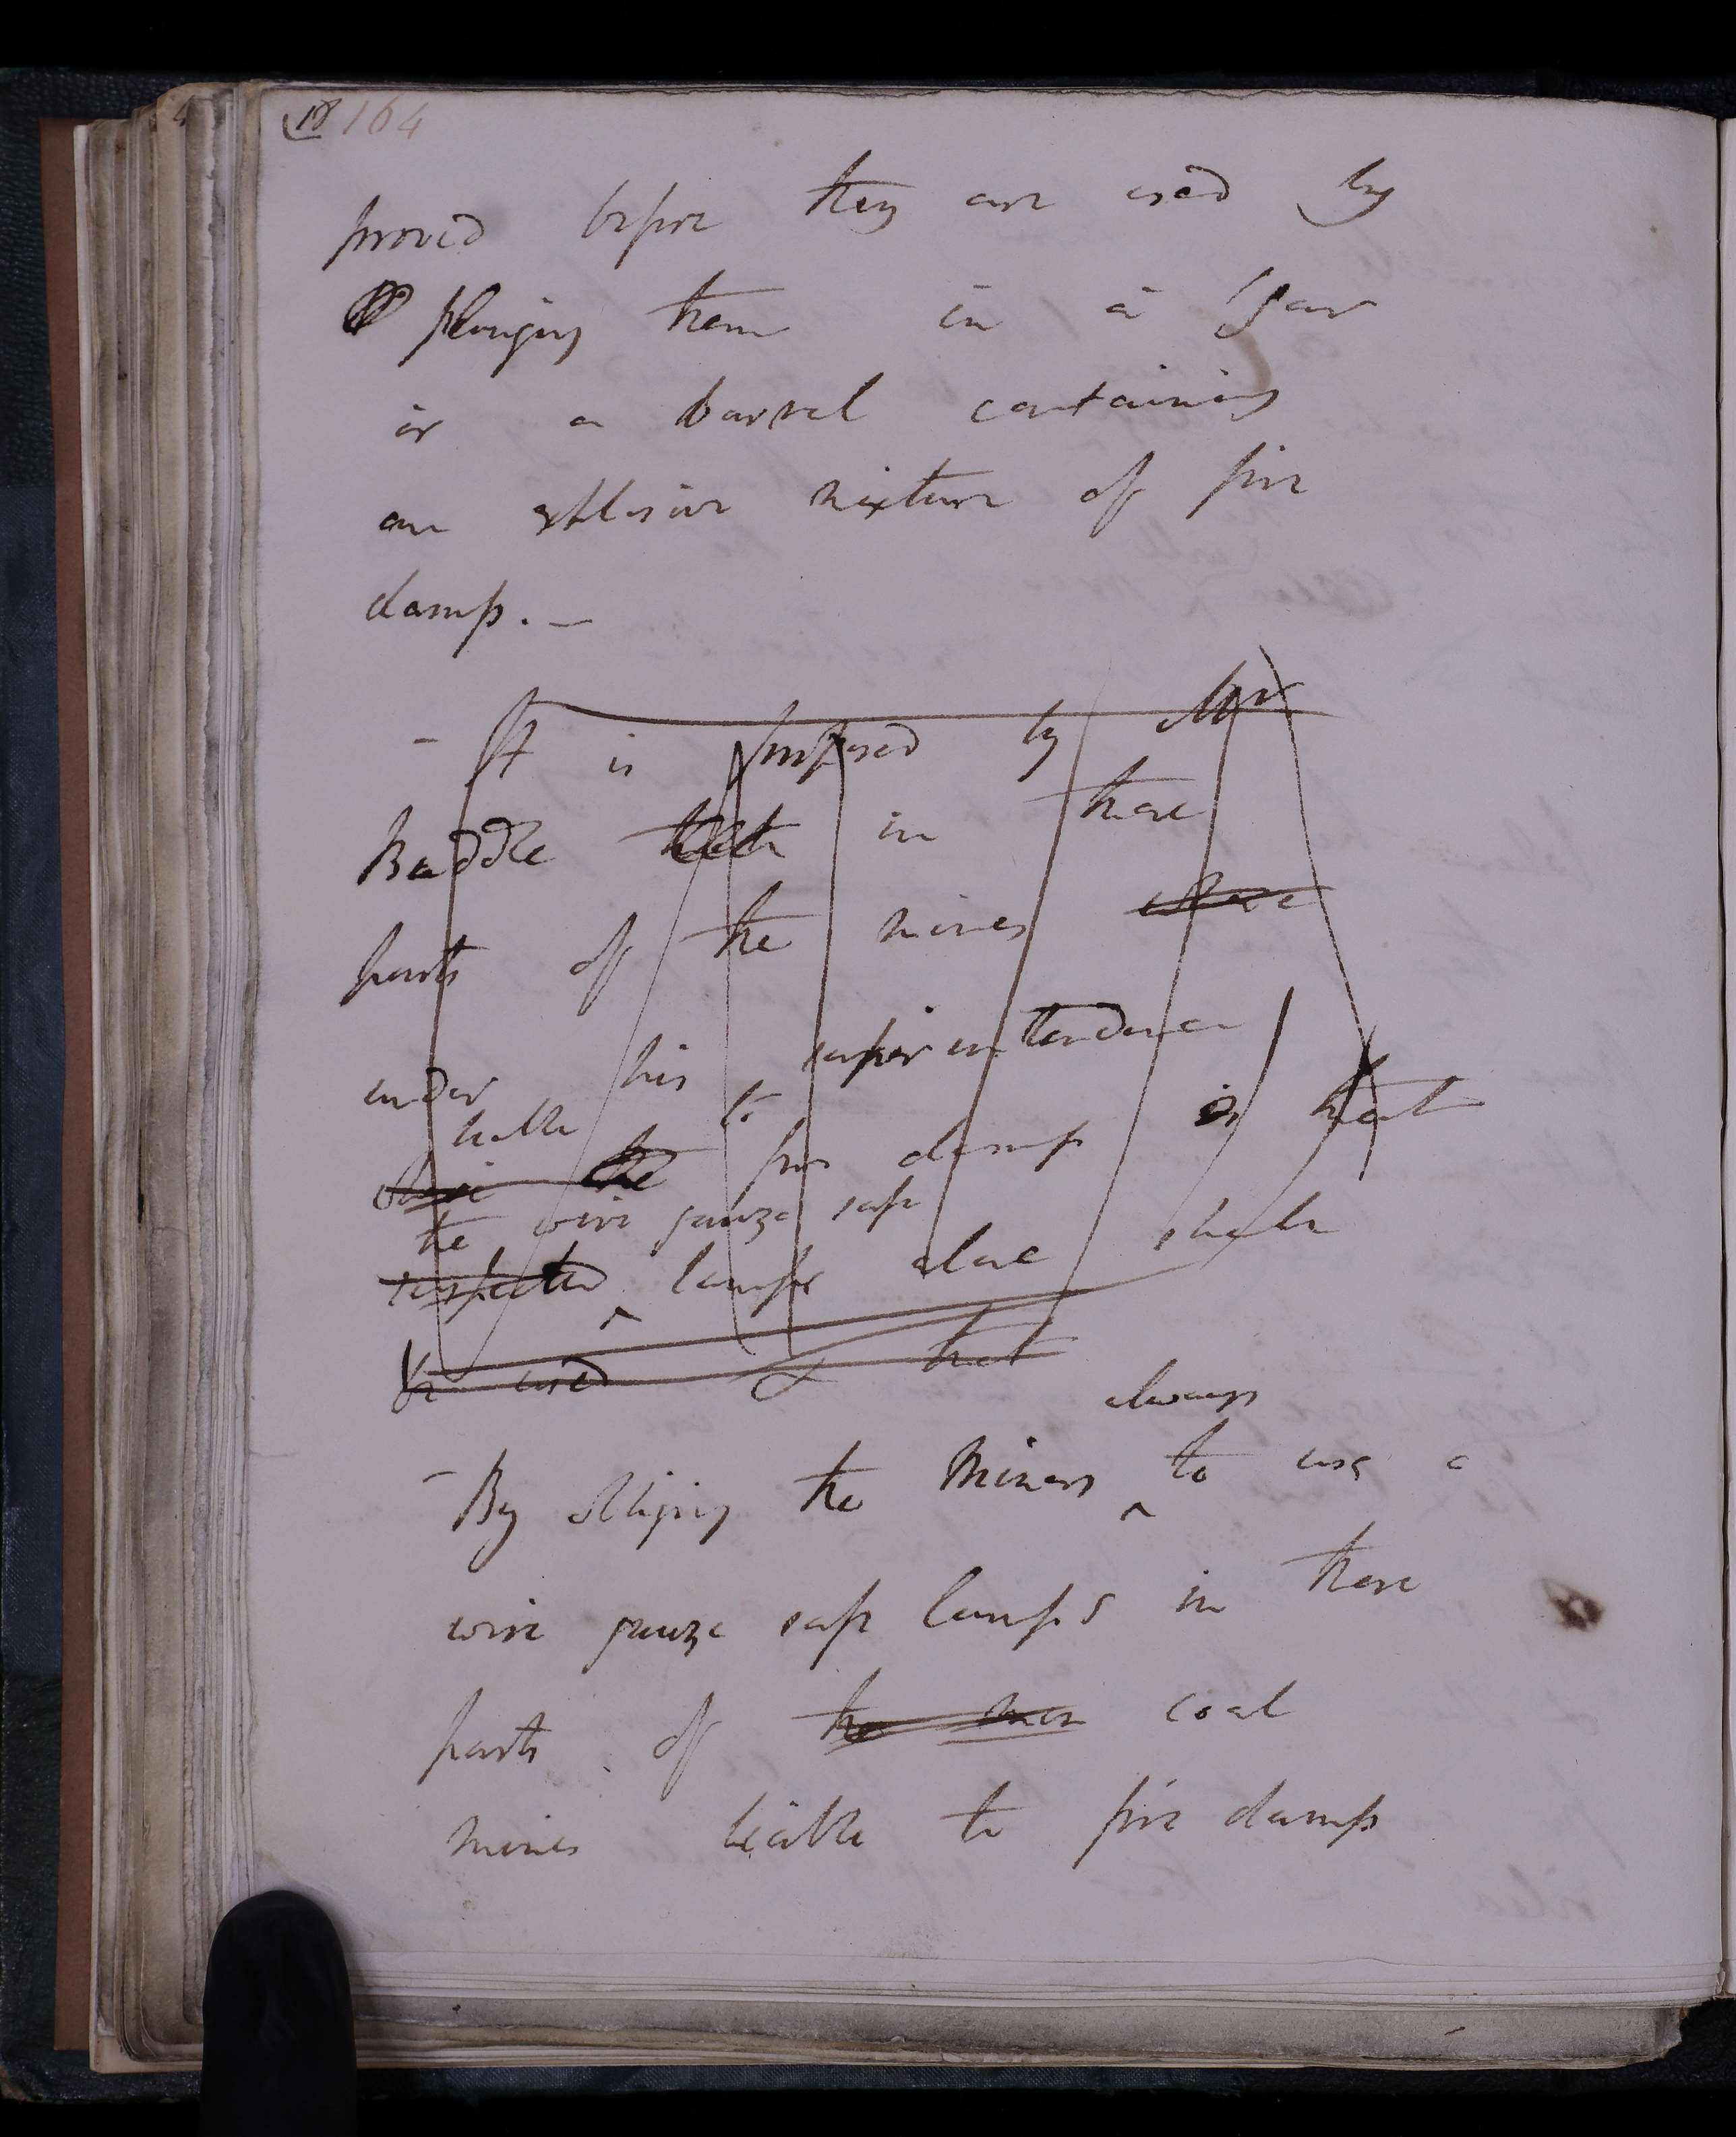 18 164
proved before they are used by
plunging them in a Jar
or a barrel containing
an explosive mixture of fire
damp. _
- It is proposed by Mr
Buddle that in those
parts of the mines where
under his superintendence
liable to
where the fire damp is that
the wire gauze safe
respected lamps alone shall
be used & that
always
- By obliging the Miners to use
wire gauze safe lamps in those
parts of the mines coal
mines liable to fire damp